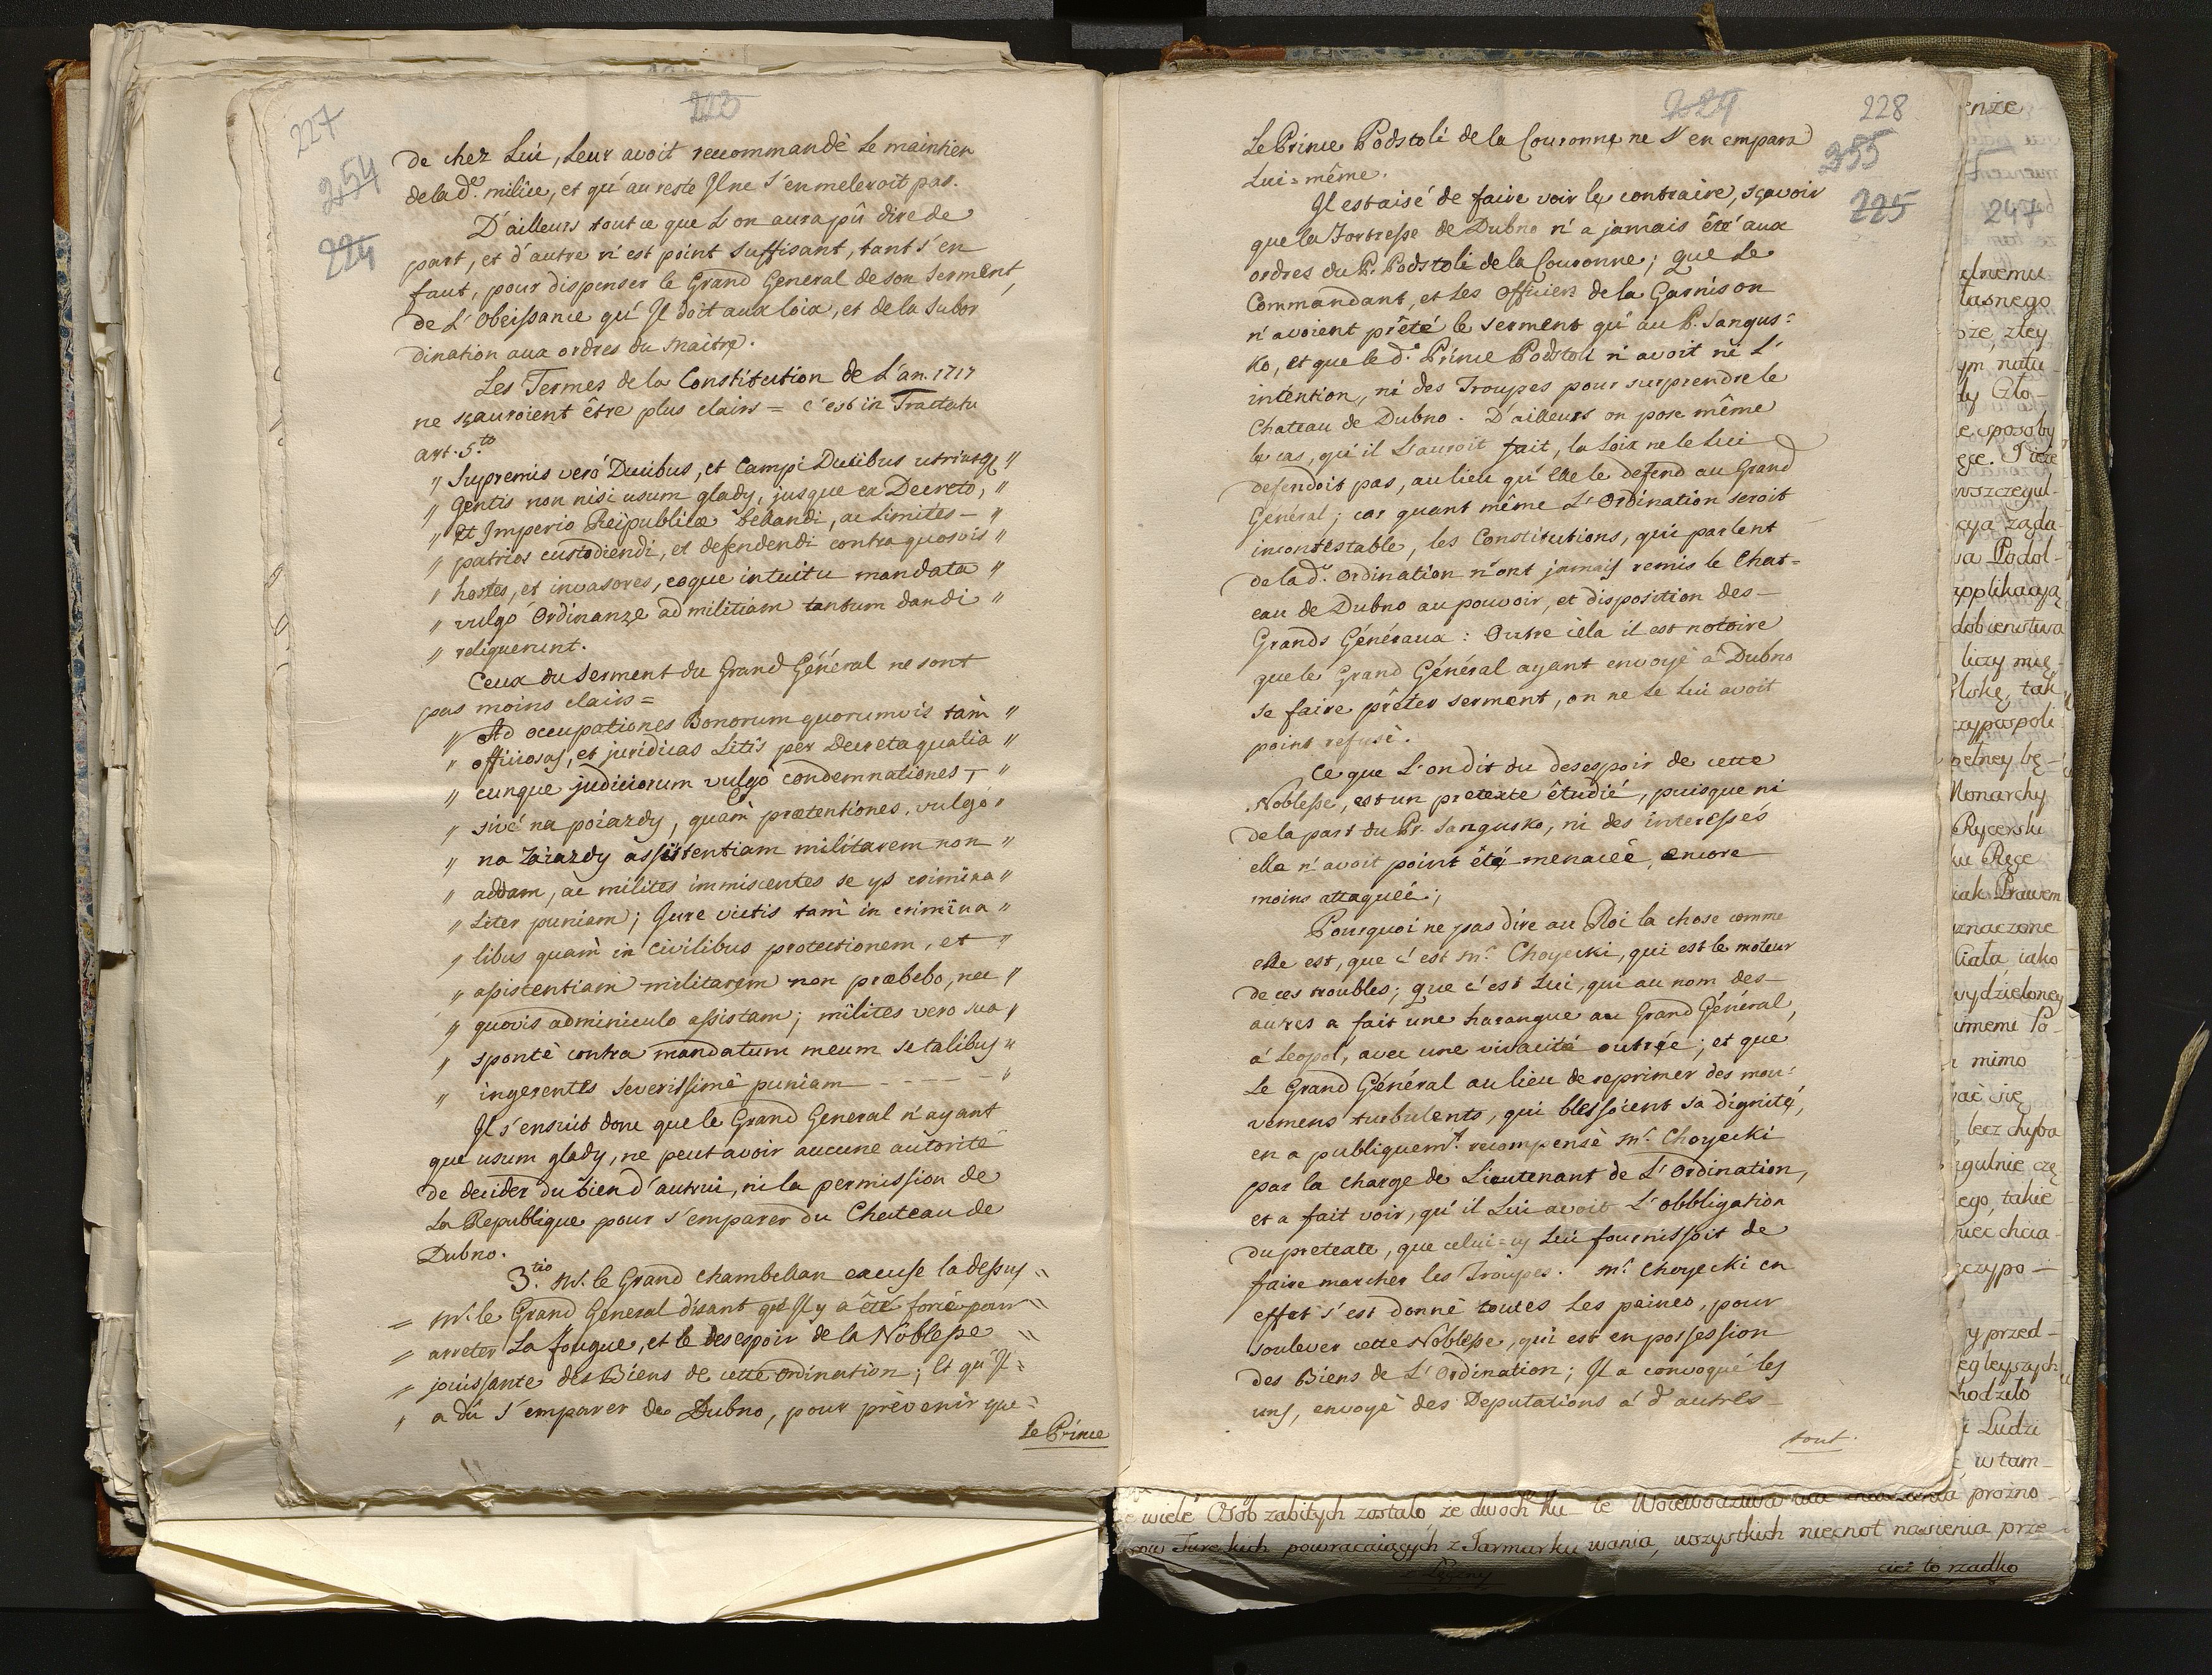 223
227
254
224
de chez Lui, Leur avoit recommandé Le maintien
de la d.e milice, et qu'au reste Il ne S'en meleroit pas.
D'ailleurs tout ce que L'on aura pû dire de
part, et d'autre n'est point Suffisant, tant s'en
faut, pour dispenser le Grand General de son Serment,
de L'Obeissance qu'Il doit aux loix, et de la Subor
dination aux ordres du Maitre.
Les Termes de la Constitution de L'an. 1717
ne sçauroient être plus clairs = c'est in Tractatu
art. 5.to
" Supremis verò Ducibus, et Campi Ducibus utriusq "
" Gentis non nisi usum glady, jusque ex Decreto, "
" Et Imperio Reipublicæ bellandi, ac Limites - "
" patrios custodiendi, et defendendi contra quosvis "
" hostes, et invasores, eoque intuitu mandata "
" vulgo Ordinanze ad militiam tantum dandi "
" reliquerunt.
Ceux du Serment du Grand Général ne sont
pas moins clairs =
" Ad occupationes Bonorum quorumvis tàm "
" officiosas, et juridicas Litis per Decreta qualia "
" cunque judiciorum vulgò condemnationes, - "
" sivè na poiazdy, quàm prætentiones, vulgò "
" na Zaiazdy assistentiam militarem non "
" addam, ac milites immiscentes se ys crimina "
" Liter puniam; Jure victis tàm in crimina "
" libus quàm in Civilibus protectionem, et "
" assistentiam militarem non præbebo, nec "
" quovis adminiculo assistam; milites vero sua "
" spontè contra mandatum meum se talibus "
" ingerentes Severissimè puniam - - - - - "
Il s'ensuit donc que le Grand General n'ayant
que usum glady, ne peut avoir aucune autorité
de decider du bien d'autrui, ni la permission de
La Republique pour s'emparer du Chateau de
Dubno.
3.tio M.r le Grand Chambellan excuse la dessus "
= M.r le Grand General disant qu'Il y a été forcé pour "
" arreter La fougue, et le desespoir de la Noblesse "
" jouissante des Biens de cette Ordination; Et qu'Il "
" a dû s'emparer de Dubno, pour prèvenir que =
Le Prince
229
228
255
225
Le Prince Podstoli de la Couronne ne S'en empara
Lui = même.
Il est aisé de faire voir le contraire, sçavoir
que la Fortresse de Dubno n'a jamais été aux
ordres du P. Podstoli de la Couronne; que Le
Commandant, et Les Officiers de la Garnison
n'avoient prêté le serment qu'au P. Sangus =
ko, et que le d.e Prince Podstoli n'avoit ni L'
intention, ni des Troupes pour surprendre le
Chateau de Dubno. D'ailleurs on pose même
le cas, qu'il L'auroit fait, la Loix ne le Lui
defendoit pas, au lieu qu'Elle le defend au Grand
Général; car quant même L'Ordination seroit
incontestable, les Constitutions, qui parlent
de la d.e Ordination n'ont jamais remis le Chat =
eau de Dubno au pouvoir, et disposition des -
Grands Généraux: Outre cela il est notoire
que le Grand Général ayant envoyé à Dubno
se faire prêter serment, on ne Le Lui avoit
point refusé.
Ce que L'on dit du desespoir de cette
Noblesse, est un pretexte êtudié, puisque ni
de la part du Pr. Sangusko, ni des interessés
elle n'avoit point été menacée, encore
moins attaquée;
Pourquoi ne pas dire au Roi la chose comme
elle est, que c'est M.r Choyecki, qui est le moteur
de ces troubles; que c'est Lui, qui au nom des -
autres a fait une harangue au Grand Général,
à Leopol, avec une vivacité outrée; et que
Le Grand Général au lieu de reprimer des mou =
vemens turbulents, qui blessoient sa dignité,
en a publiquem.t recompensé M.r Choyecki
par la charge de Lieutenant de L'Ordination,
et a fait voir, qu'il Lui avoit L'obbligation
du pretexte, que celui = cy Lui fournissoit de
faire marcher les Troupes. M.r Choyecki en
effet s'est donné toutes Les peines, pour
soulever cette Noblesse, qui est en possession
des Biens de L'Ordination; Il a convoqué les
uns, envoyé des Deputations à d'autres -
tout.
247
łasnego
sposoby
va Podol-
applikacyą
dobienstwa
liczy mię-
tak
Monarchy
Rycersku
iak Prawem
znaczone
Ciała iako
wydzieloney
mimo
lecz chyba
ego, takie
y przed-
Ludzi
w tam-
wiele Osób zabitych zostało, że dwoch
Tureckich powracaiących z Jarmarku
wania, wszystkich niecnot nasienia prze-
cież to rzadko